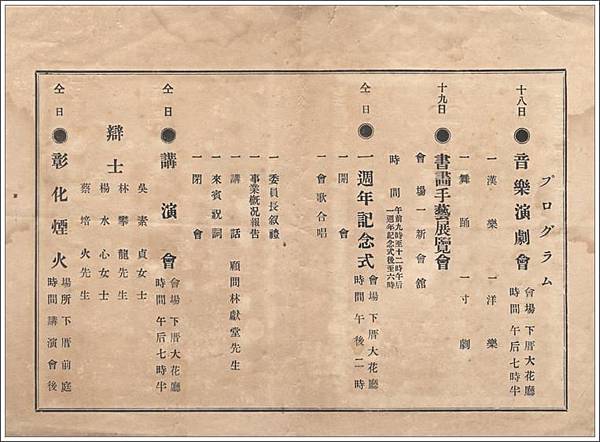 プログラム
十八日 ● 音樂演劇會 會場 下厝大花廳
時間 午后七時半
一漢樂 一洋樂
一舞踊 一寸劇
十九日 ● 書畫手藝展覽會
會場 一新會館
時間 午前九時至十二時午后
一週年記念式後至六時
仝日 ● 一週年記念式 會場 下厝大花廳
時間 午後二時
一開會
一會歌合唱
一委員長叙禮
一事業概况報告
一講話 顧問林獻堂先生
一來賓祝詞
一閉會
仝日 ● 講演會 會場 下厝大花廳
時間 午后七時半
辯士
吳素貞女士
林攀龍先生
楊水心女士
蔡培火先生
仝日 ● 彰化煙火 場所 下厝前庭
時間 講演會後